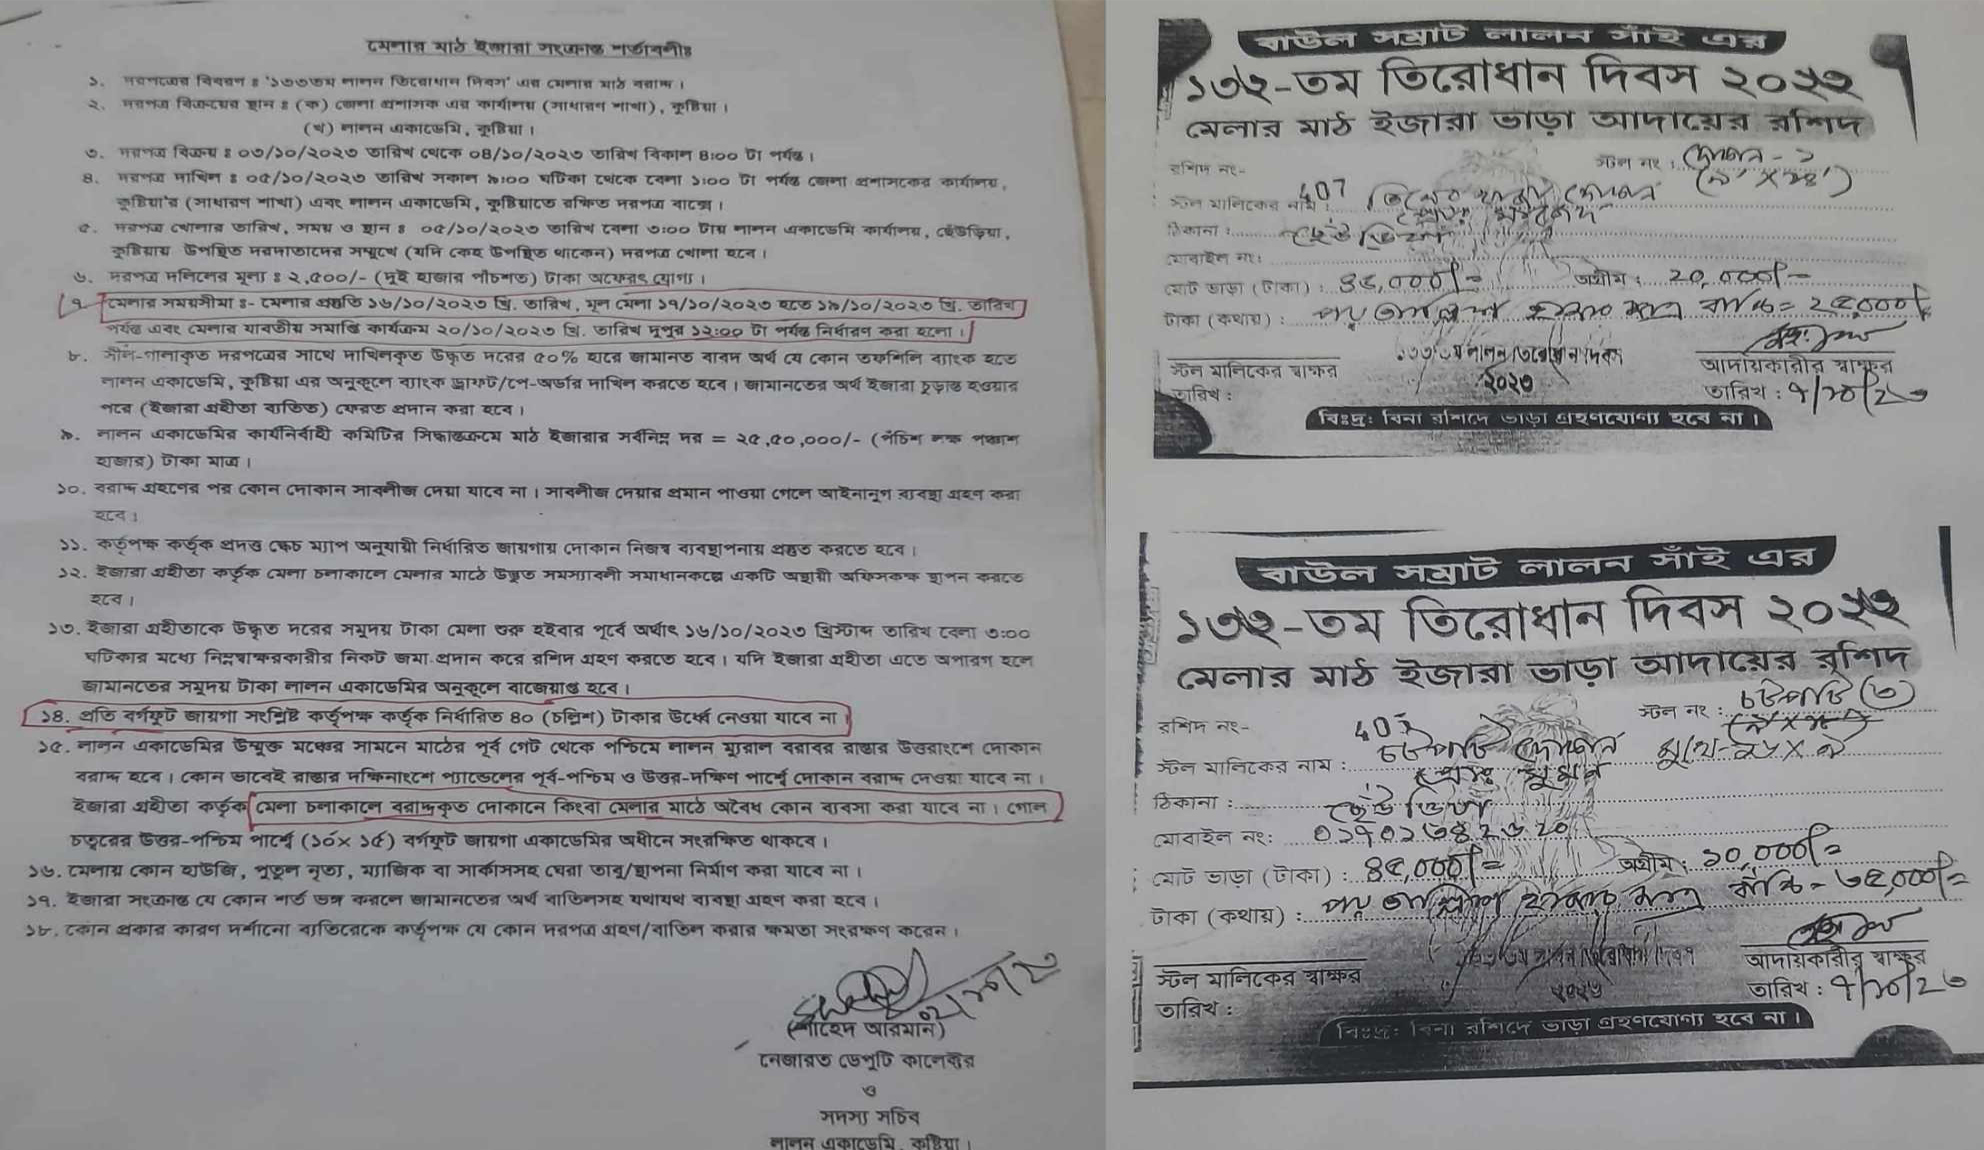 মেলার মাঠ ইজারা সংক্রান্ত শর্তাবলীঃ
১. দরপত্রের বিবরণ ঃ '১৩৩তম লালন তিরোধান দিবস' এর মেলার মাঠ বরাদ্দ।
২. দরপত্র বিক্রয়ের স্থান ঃ (ক) জেলা প্রশাসক এর কার্যালয় (সাধারণ শাখা), কুষ্টিয়া।
(খ) লালন একাডেমি, কুষ্টিয়া।
৩. দরপত্র বিক্রয় ঃ ০৩/১০/২০২৩ তারিখ থেকে ০৪/১০/২০২৩ তারিখ বিকাল ৪:০০ টা পর্যন্ত।
৪. দরপত্র দাখিল ঃ ০৫/১০/২০২৩ তারিখ সকাল ৯:০০ ঘটিকা থেকে বেলা ১:০০ টা পর্যন্ত জেলা প্রশাসকের কার্যালয়,
কুষ্টিয়া'র (সাধারণ শাখা) এবং লালন একাডেমি, কুষ্টিয়াতে রক্ষিত দরপত্র বাক্সে।
৫. দরপত্র খোলার তারিখ, সময় ও স্থান ঃ ০৫/১০/২০২৩ তারিখ বেলা ৩:০০ টায় লালন একাডেমি কার্যালয়, ছেঁউড়িয়া,
কুষ্টিয়ায় উপস্থিত দরদাতাদের সম্মুখে (যদি কেহ উপস্থিত থাকেন) দরপত্র খোলা হবে।
৬. দরপত্র দলিলের মূল্য ঃ ২,৫০০/- (দুই হাজার পাঁচশত) টাকা অফেরৎ যোগ্য।
৭. মেলার সময়সীমা ঃ- মেলার প্রস্তুতি ১৬/১০/২০২৩ খ্রি. তারিখ, মূল মেলা ১৭/১০/২০২৩ হতে ১৯/১০/২০২৩ খ্রি. তারিখ
পর্যন্ত এবং মেলার যাবতীয় সমাপ্তি কার্যক্রম ২০/১০/২০২৩ খ্রি. তারিখ দুপুর ১২:০০ টা পর্যন্ত নির্ধারণ করা হলো।
৮. সীল-গালাকৃত দরপত্রের সাথে দাখিলকৃত উদ্ধৃত দরের ৫০% হারে জামানত বাবদ অর্থ যে কোন তফশিলি ব্যাংক হতে
লালন একাডেমি, কুষ্টিয়া এর অনুকূলে ব্যাংক ড্রাফট/পে-অর্ডার দাখিল করতে হবে। জামানতের অর্থ ইজারা চূড়ান্ত হওয়ার
পরে (ইজারা গ্রহীতা ব্যতিত) ফেরত প্রদান করা হবে।
৯. লালন একাডেমির কার্যনির্বাহী কমিটির সিদ্ধান্তক্রমে মাঠ ইজারার সর্বনিম্ন দর = ২৫,৫০,০০০/- (পঁচিশ লক্ষ পঞ্চাশ
হাজার) টাকা মাত্র।
১০. বরাদ্দ গ্রহণের পর কোন দোকান সাবলীজ দেয়া যাবে না। সাবলীজ দেয়ার প্রমান পাওয়া গেলে আইনানুগ ব্যবস্থা গ্রহণ করা
হবে।
১১. কর্তৃপক্ষ কর্তৃক প্রদত্ত স্কেচ ম্যাপ অনুযায়ী নির্ধারিত জায়গায় দোকান নিজস্ব ব্যবস্থাপনায় প্রস্তুত করতে হবে।
১২. ইজারা গ্রহীতা কর্তৃক মেলা চলাকালে মেলার মাঠে উদ্ভূত সমস্যাবলী সমাধানকল্পে একটি অস্থায়ী অফিসকক্ষ স্থাপন করতে
হবে।
১৩. ইজারা গ্রহীতাকে উদ্ধৃত দরের সমুদয় টাকা মেলা শুরু হইবার পূর্বে অর্থাৎ ১৬/১০/২০২৩ খ্রিস্টাব্দ তারিখ বেলা ৩:০০
ঘটিকার মধ্যে নিম্নস্বাক্ষরকারীর নিকট জমা প্রদান করে রশিদ গ্রহণ করতে হবে। যদি ইজারা গ্রহীতা এতে অপারগ হলে
জামানতের সমুদয় টাকা লালন একাডেমির অনুকূলে বাজেয়াপ্ত হবে।
১৪. প্রতি বর্গফুট জায়গা সংশ্লিষ্ট কর্তৃপক্ষ কর্তৃক নির্ধারিত ৪০ (চল্লিশ) টাকার উর্ধ্বে নেওয়া যাবে না।
১৫. লালন একাডেমির উন্মুক্ত মঞ্চের সামনে মাঠের পূর্ব গেট থেকে পশ্চিমে লালন ম্যুরাল বরাবর রাস্তার উত্তরাংশে দোকান
বরাদ্দ হবে। কোন ভাবেই রাস্তার দক্ষিনাংশে প্যান্ডেলের পূর্ব-পশ্চিম ও উত্তর-দক্ষিণ পার্শ্বে দোকান বরাদ্দ দেওয়া যাবে না।
ইজারা গ্রহীতা কর্তৃক মেলা চলাকালে বরাদ্দকৃত দোকানে কিংবা মেলার মাঠে অবৈধ কোন ব্যবসা করা যাবে না। গোল
চত্বরের উত্তর-পশ্চিম পার্শ্বে (১০́x ১৫́) বর্গফুট জায়গা একাডেমির অধীনে সংরক্ষিত থাকবে।
১৬. মেলায় কোন হাউজি, পুতুল নৃত্য, ম্যাজিক বা সার্কাসসহ ঘেরা তাবু/স্থাপনা নির্মাণ করা যাবে না।
১৭. ইজারা সংক্রান্ত যে কোন শর্ত ভঙ্গ করলে জামানতের অর্থ বাতিলসহ যথাযথ ব্যবস্থা গ্রহণ করা হবে।
১৮. কোন প্রকার কারণ দর্শানো ব্যতিরেকে কর্তৃপক্ষ যে কোন দরপত্র গ্রহণ/বাতিল করার ক্ষমতা সংরক্ষণ করেন।
(শাহেদ আরমান)
নেজারত ডেপুটি কালেক্টর
ও
সদস্য সচিব
লালন একাডেমি, কুষ্টিয়া।
বাউল সম্রাট লালন সাঁই এর
১৩২-তম তিরোধান দিবস ২০২২
মেলার মাঠ ইজারা ভাড়া আদায়ের রশিদ
রশিদ নং- 407
স্টল নং : দোকান - ১
স্টল মালিকের নাম : দোকান
ঠিকানা : ছেঁউড়িয়া
মোবাইল নং:
মোট ভাড়া (টাকা) : ৪৫,০০০/= অগ্রীম : ২০,০০০/-
টাকা (কথায়) : পয়তাল্লিশ হাজার মাত্র বাকি = ২৫,০০০/
১৩৩তম লালন তিরোধান দিবস
২০২৩
স্টল মালিকের স্বাক্ষর
তারিখ :
আদায়কারীর স্বাক্ষর
তারিখ : ৭/১০/২৩
বিঃদ্রঃ বিনা রশিদে ভাড়া গ্রহণযোগ্য হবে না।
বাউল সম্রাট লালন সাঁই এর
১৩২-তম তিরোধান দিবস ২০২২
মেলার মাঠ ইজারা ভাড়া আদায়ের রশিদ
রশিদ নং-
স্টল নং : চটপটি (৩)
স্টল মালিকের নাম : চটপটি দোকান
প্রোঃ সুমন
ঠিকানা : ছেঁউড়িয়া
মোবাইল নং:
মোট ভাড়া (টাকা) : ৪৫,০০০/= অগ্রীম : ১০,০০০/=
টাকা (কথায়) : পয়তাল্লিশ হাজার মাত্র বাকি = ৩৫,০০০/=
২০২৩
স্টল মালিকের স্বাক্ষর
তারিখ :
আদায়কারীর স্বাক্ষর
তারিখ : ৭/১০/২৩
বিঃদ্রঃ বিনা রশিদে ভাড়া গ্রহণযোগ্য হবে না।